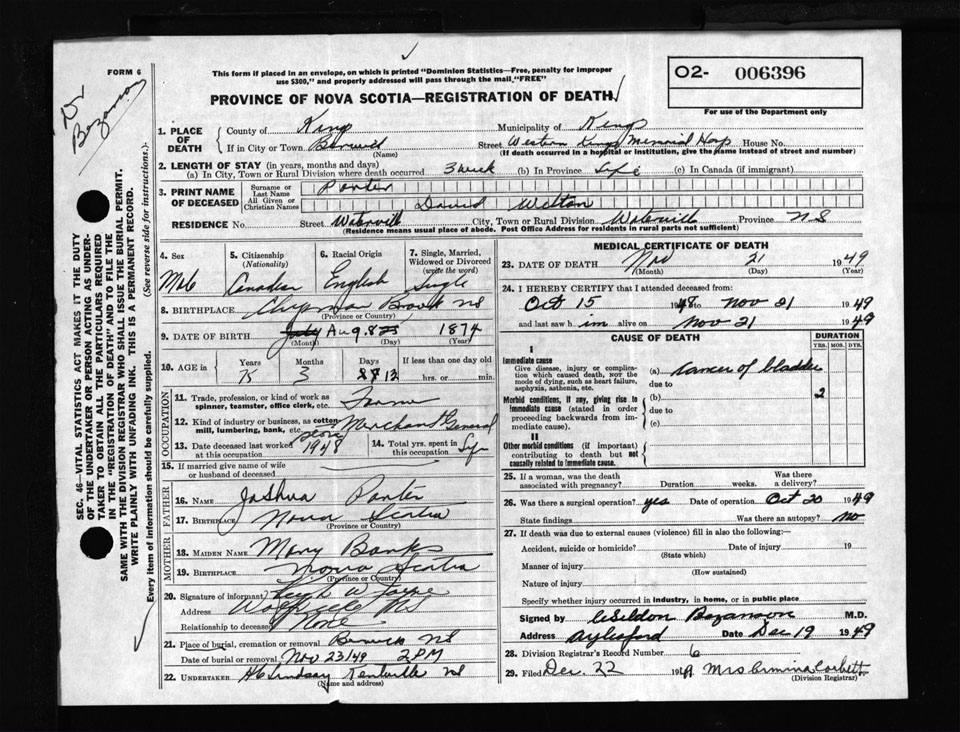 FORM 6
Dr Bezanson
This form if placed in an envelope, on which is printed "Dominion Statistics—Free, penalty for improper
use $300," and properly addressed will pass through the mail, "FREE"
PROVINCE OF NOVA SCOTIA—REGISTRATION OF DEATH
O2- 006396
For use of the Department only
SEC. 46—VITAL STATISTICS ACT MAKES IT THE DUTY
OF THE UNDERTAKER OR PERSON ACTING AS UNDER-
TAKER TO OBTAIN ALL THE PARTICULARS REQUIRED
IN THE "REGISTRATION OF DEATH" AND TO FILE THE
SAME WITH THE DIVISION REGISTRAR WHO SHALL ISSUE THE BURIAL PERMIT.
WRITE PLAINLY WITH UNFADING INK. THIS IS A PERMANENT RECORD.
Every item of information should be carefully supplied. (See reverse side for instructions.)
1. PLACE OF DEATH County of Kings Municipality of Kings
If in City or Town Berwick Street Western Kings Memorial Hosp House No.
(Name) (If death occurred in a hospital or institution, give the name instead of street and number)
2. LENGTH OF STAY (in years, months and days)
(a) In City, Town or Rural Division where death occurred 3 week (b) In Province Life (c) In Canada (if immigrant)
3. PRINT NAME OF DECEASED Surname or Last Name Porter
All Given or Christian Names David Welton
RESIDENCE No. Street Waterville City, Town or Rural Division Waterville Province N S
(Residence means usual place of abode. Post Office Address for residents in rural parts not sufficient)
4. Sex Male
5. Citizenship (Nationality) Canadian
6. Racial Origin English
7. Single, Married, Widowed or Divorced (write the word) Single
8. BIRTHPLACE Chipman Brook NS
(Province or Country)
9. DATE OF BIRTH July Aug. 8 1874
(Month) (Day) (Year)
10. AGE in Years 75 Months 3 Days 13 If less than one day old hrs. or min.
OCCUPATION
11. Trade, profession, or kind of work as
spinner, teamster, office clerk, etc. Farmer
12. Kind of industry or business, as cotton
mill, lumbering, bank, etc. Merchant General store
13. Date deceased last worked at this occupation 1948
14. Total yrs. spent in this occupation Life
15. If married give name of wife
or husband of deceased
FATHER
16. NAME Joshua Porter
17. BIRTHPLACE Nova Scotia
(Province or Country)
MOTHER
18. MAIDEN NAME Mary Banks
19. BIRTHPLACE Nova Scotia
(Province or Country)
20. Signature of informant
Address Wolfville NS
Relationship to deceased None
21. Place of burial, cremation or removal Berwick NS
Date of burial or removal Nov 23/49 2 PM
22. UNDERTAKER H C Lindsay Kentville NS
(Name and address)
MEDICAL CERTIFICATE OF DEATH
23. DATE OF DEATH Nov 21 1949
(Month) (Day) (Year)
24. I HEREBY CERTIFY that I attended deceased from:
Oct 15 1948 to Nov 21 1949
and last saw h im alive on Nov 21 1949
CAUSE OF DEATH DURATION
YRS. MOS. DYS.
I
Immediate cause
Give disease, injury or complica-
tion which caused death, NOT the
mode of dying, such as heart failure,
asphyxia, asthenia, etc.
(a) Cancer of bladder
due to
Morbid conditions, if any, giving rise to
immediate cause (stated in order
proceeding backwards from im-
mediate cause).
(b) 2
due to
(c)
II
Other morbid conditions (if important)
contributing to death but not
causally related to immediate cause.
25. If a woman, was the death
associated with pregnancy? Duration weeks. Was there a delivery?
26. Was there a surgical operation? yes Date of operation Oct 20 1949
State findings Was there an autopsy? no
27. If death was due to external causes (violence) fill in also the following:—
Accident, suicide or homicide? Date of injury 19
(State which)
Manner of injury
(How sustained)
Nature of injury
Specify whether injury occurred in industry, in home, or in public place
Signed by Weldon Bezanson M.D.
Address Aylesford Date Dec 19 1949
28. Division Registrar's Record Number 6
29. Filed Dec. 22 1949 Mrs Ermina Corbett
(Division Registrar)